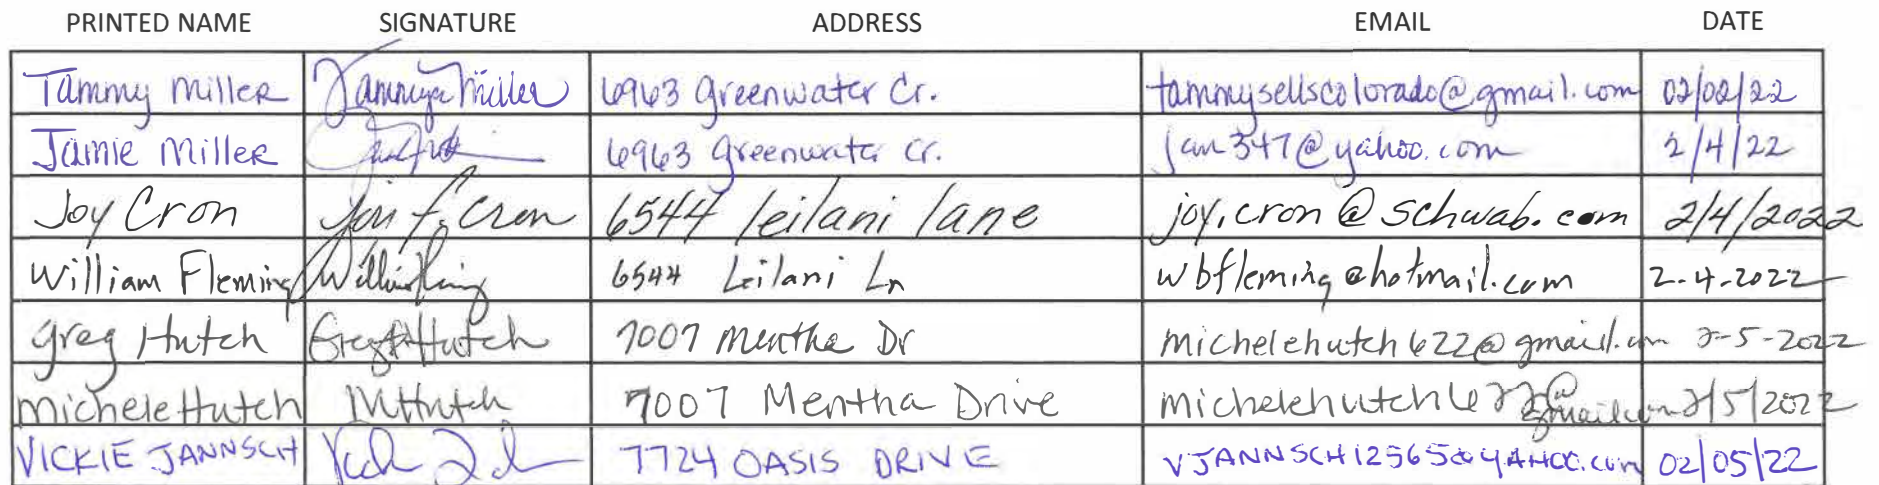 PRINTED NAME SIGNATURE ADDRESS EMAIL DATE
Tammy Miller Tammy Miller 6963 Greenwater Cr. tammysellscolorado@gmail.com 02/02/22
Jamie Miller 6963 Greenwater Cr. jam347@yahoo.com 2/4/22
Joy Cron Cron 6544 leilani lane joy.cron@schwab.com 2/4/2022
William Fleming 6544 Leilani Ln wbfleming@hotmail.com 2-4-2022
Greg Hutch Greg Hutch 7007 Mentha Dr michelehutch622@gmail.com 2-5-2022
Michele Hutch MHutch 7007 Mentha Drive michelehutch622@gmail.com 2/5/2022
VICKIE JANNSCH 7724 OASIS DRIVE VJANNSCH12565@YAHOO.com 02/05/22